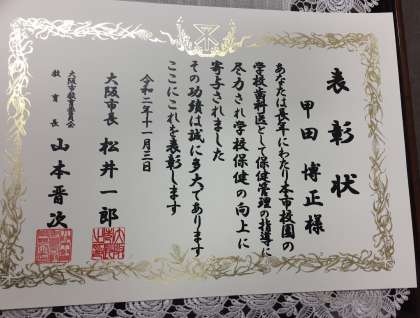 表彰状
甲田 博正 様
あなたは長年にわたり本市校園の
学校歯科医として保健管理の指導に
尽力され学校保健の向上に
寄与されました
その功績は誠に多大であります
ここにこれを表彰します
令和二年十一月三日
大阪市長 松井一郎
大阪市教育委員会
教育長 山本晋次